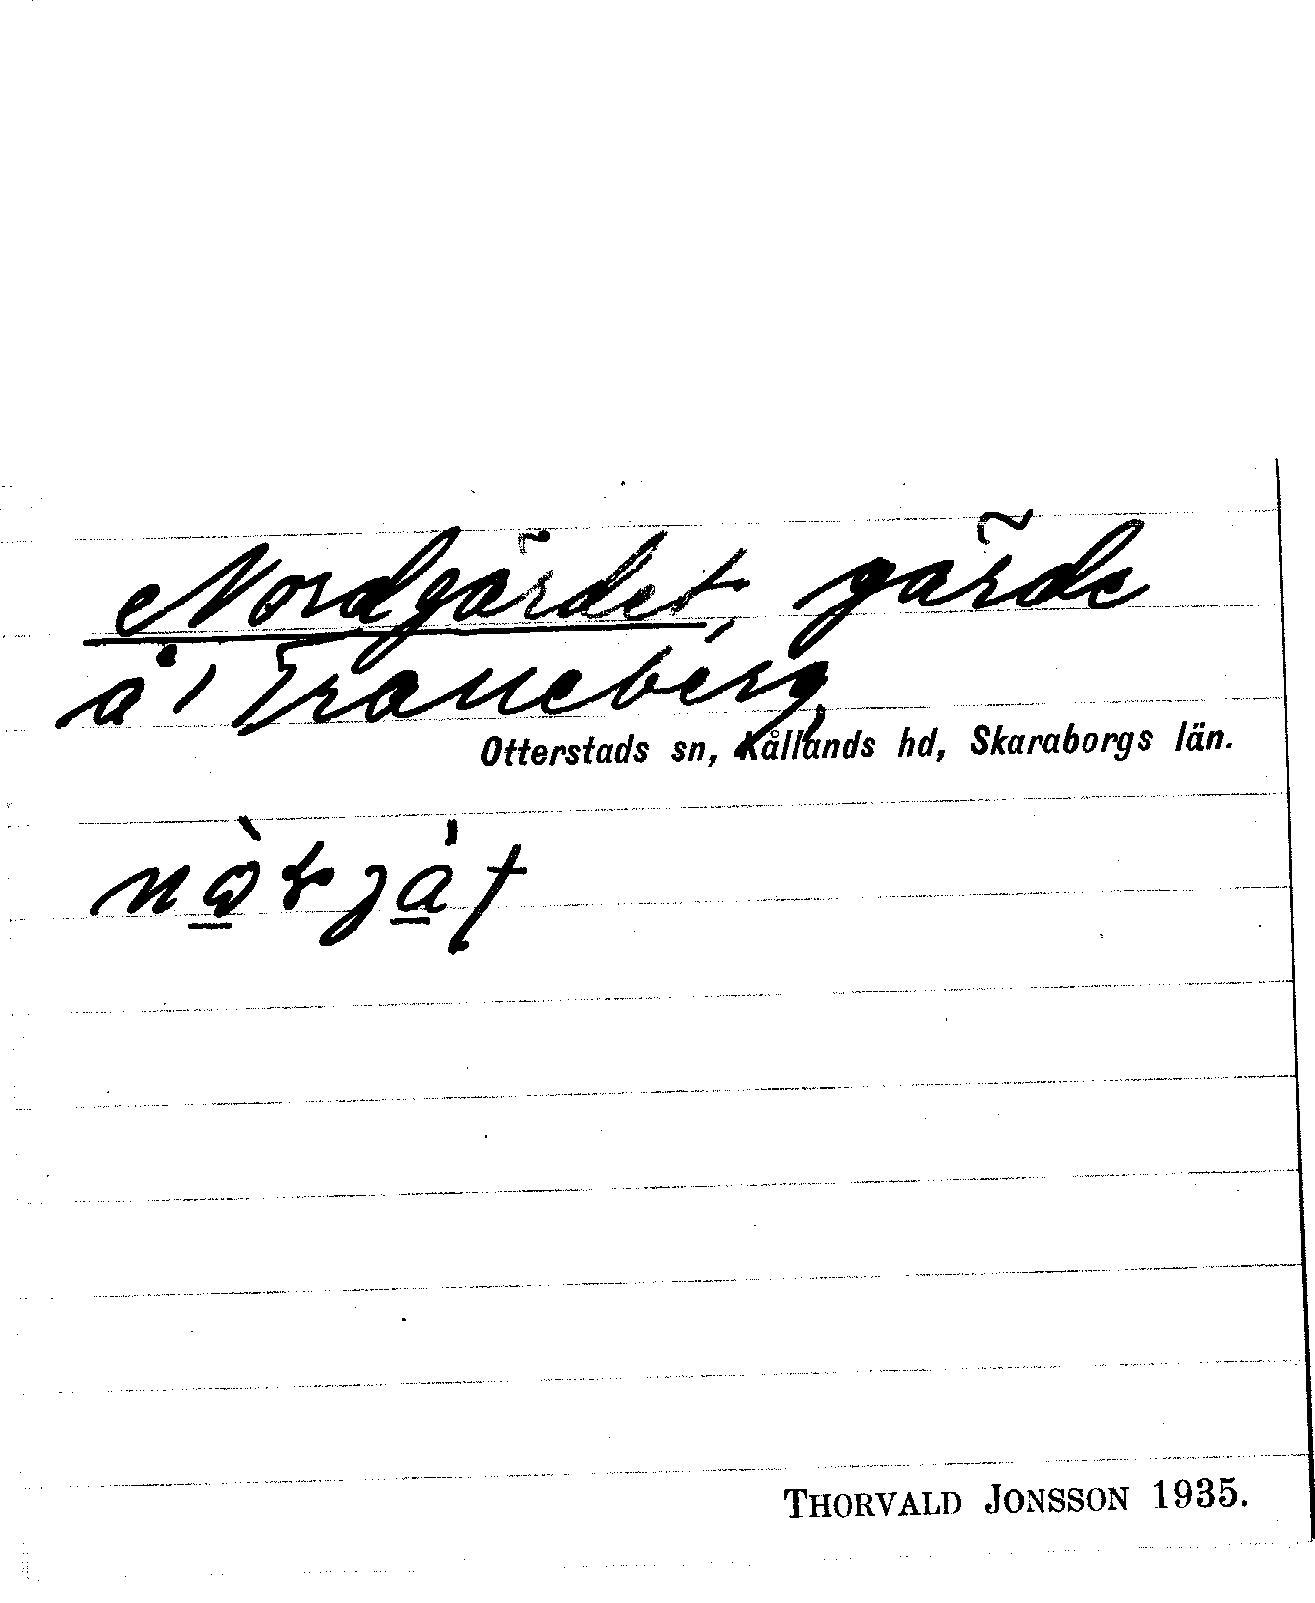 Nordgärdet, gärde
å Traneberg,
Otterstads sn, Kållands hd, Skaraborgs län.
THORVALD JONSSON 1935.